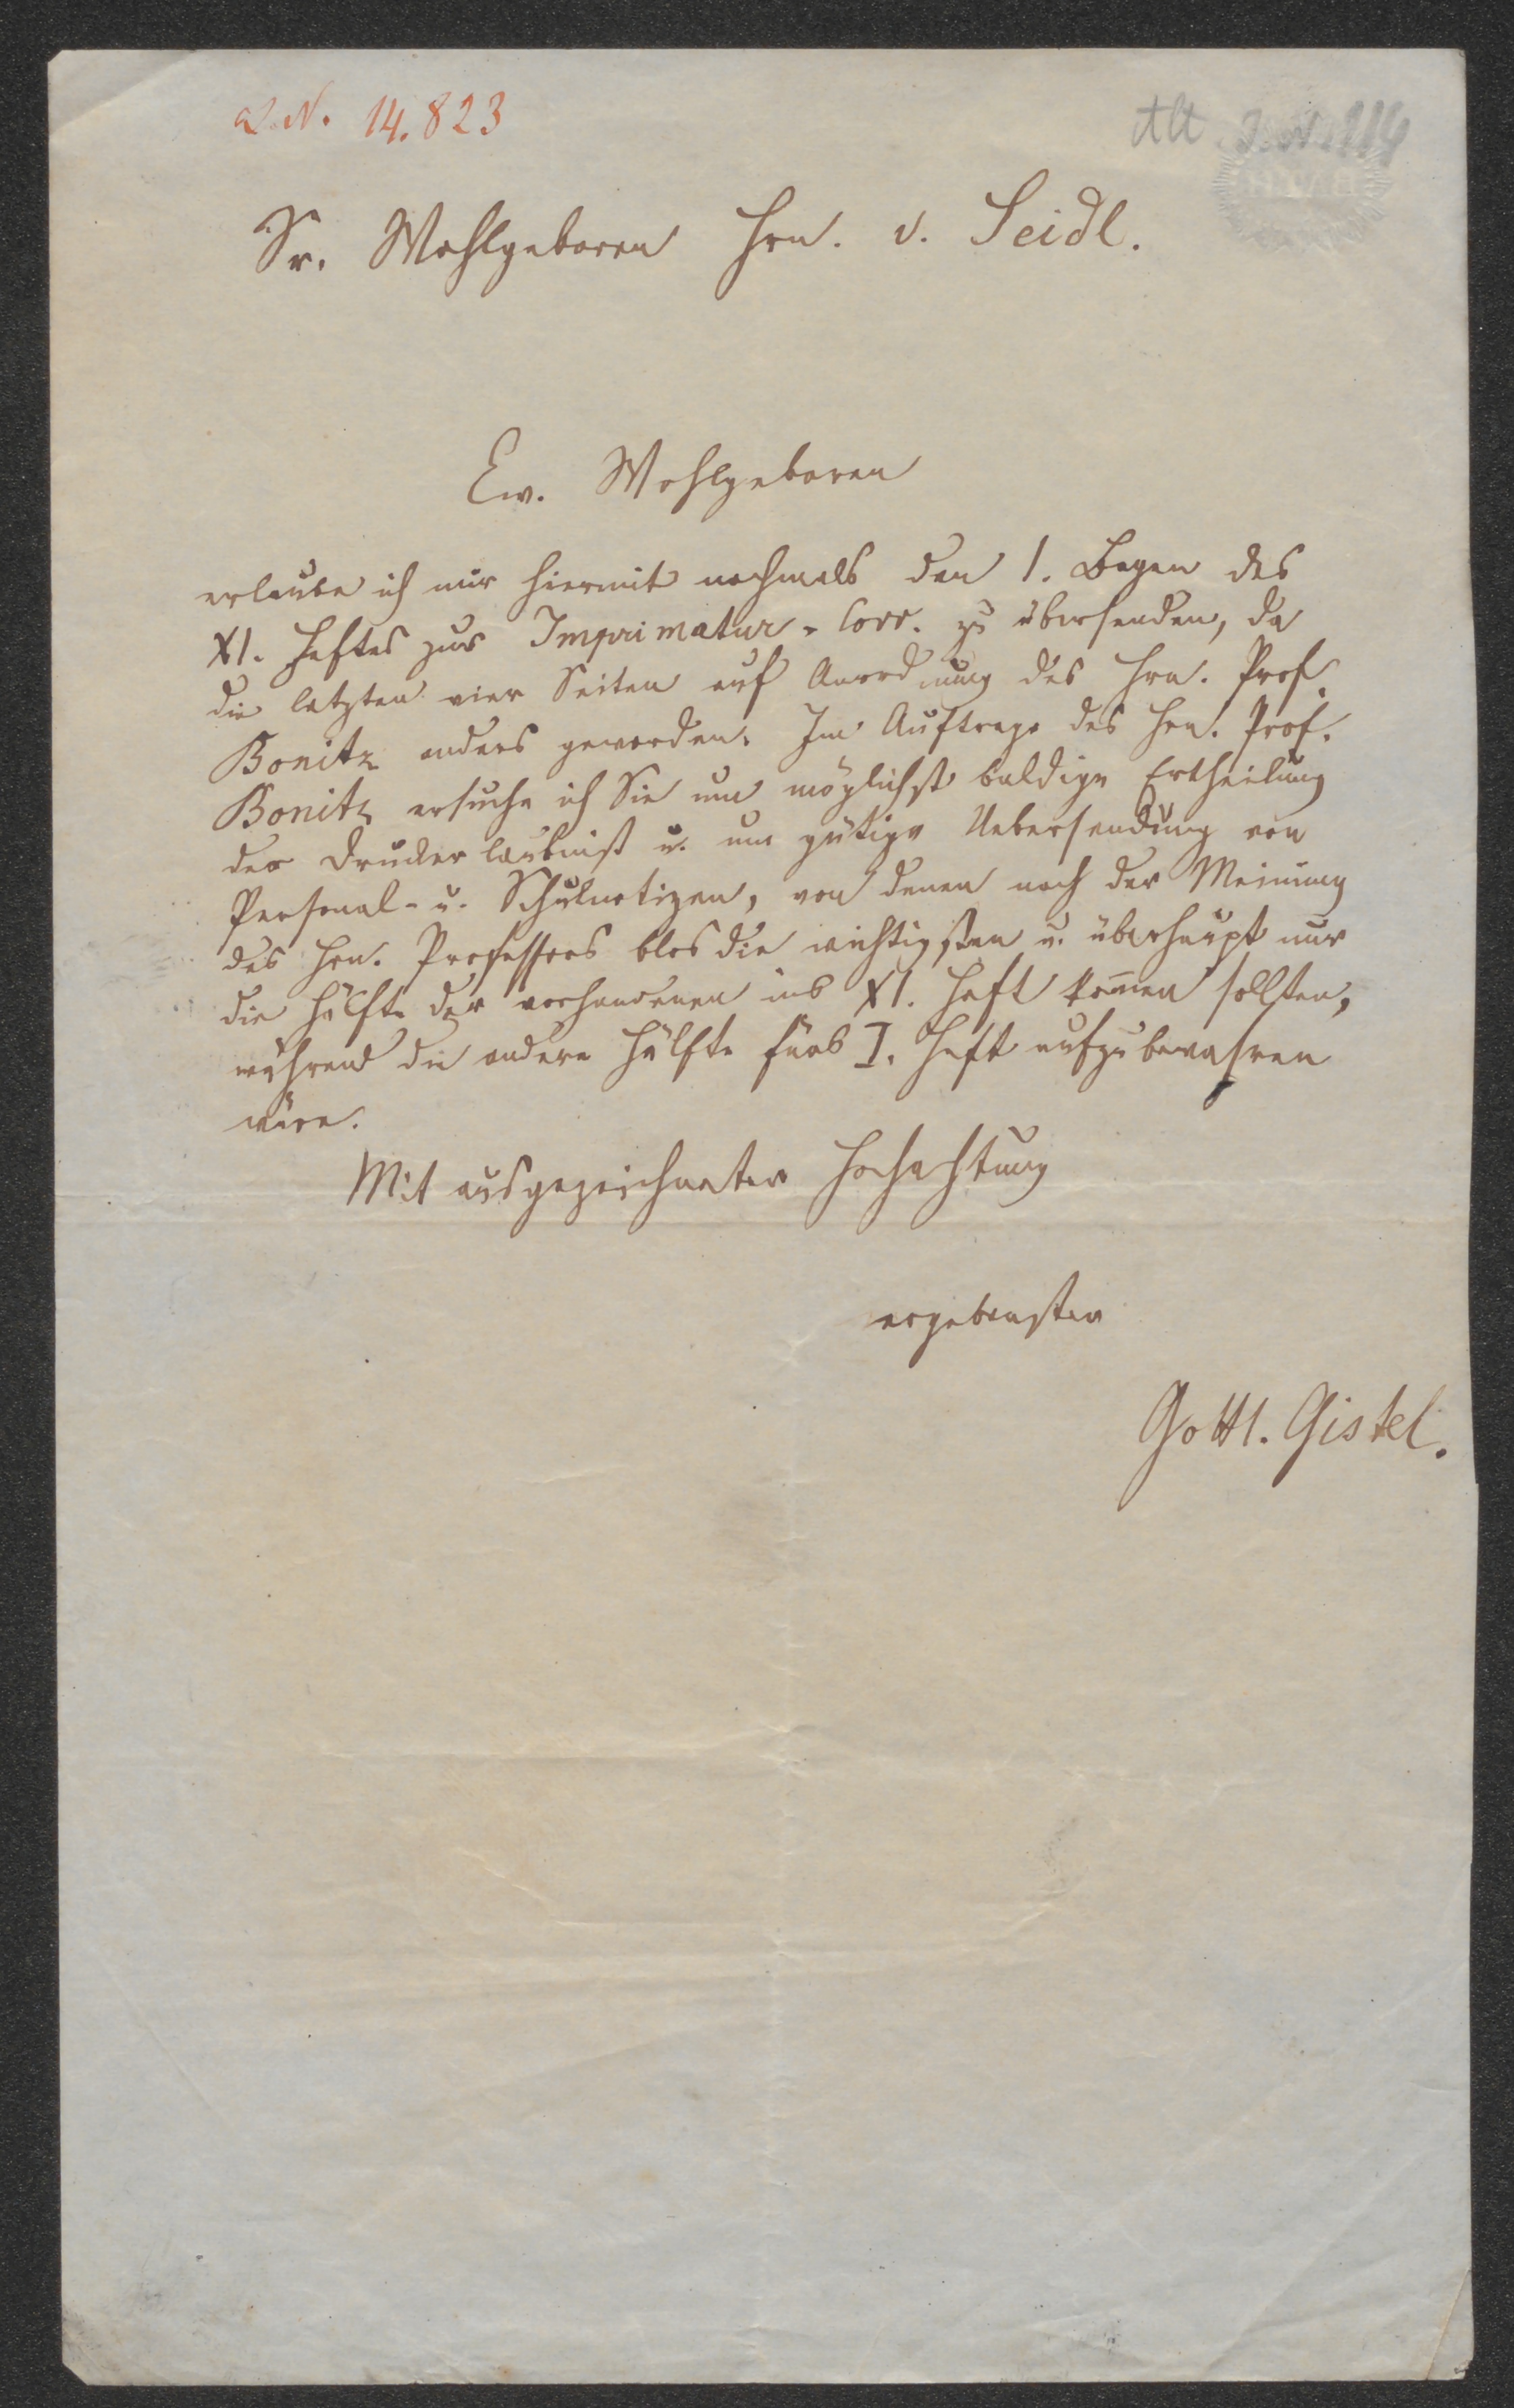 J. N. 14.823
Alt J. N. 114
Sr. Wohlgeboren Hrn. v. Seidl.
Ew. Wohlgeboren
erlaube ich mir hiermit nochmals den 1. Bogen des
XI. Heftes zur Imprimatur-Corr. zu übersenden, da
die letzten vier Seiten auf Anordnung des Hrn. Prof.
Bonitz anders geworden. Im Auftrage des Hrn. Prof.
Bonitz ersuche ich Sie um möglichst baldige Ertheilung
der Druckerlaubniß u. um gütige Uebersendung von
Personal- u. Schulnotizen, von denen nach der Meinung
des Hrn. Professors blos die wichtigsten u. überhaupt nur
die Hälfte der vorhandenen ins XI. Heft kom̅en sollten,
während die andere Hälfte fürs I. Heft aufzubewahren
wäre.
Mit ausgezeichneter Hochachtung
ergebenster
Gottl. Gistel.